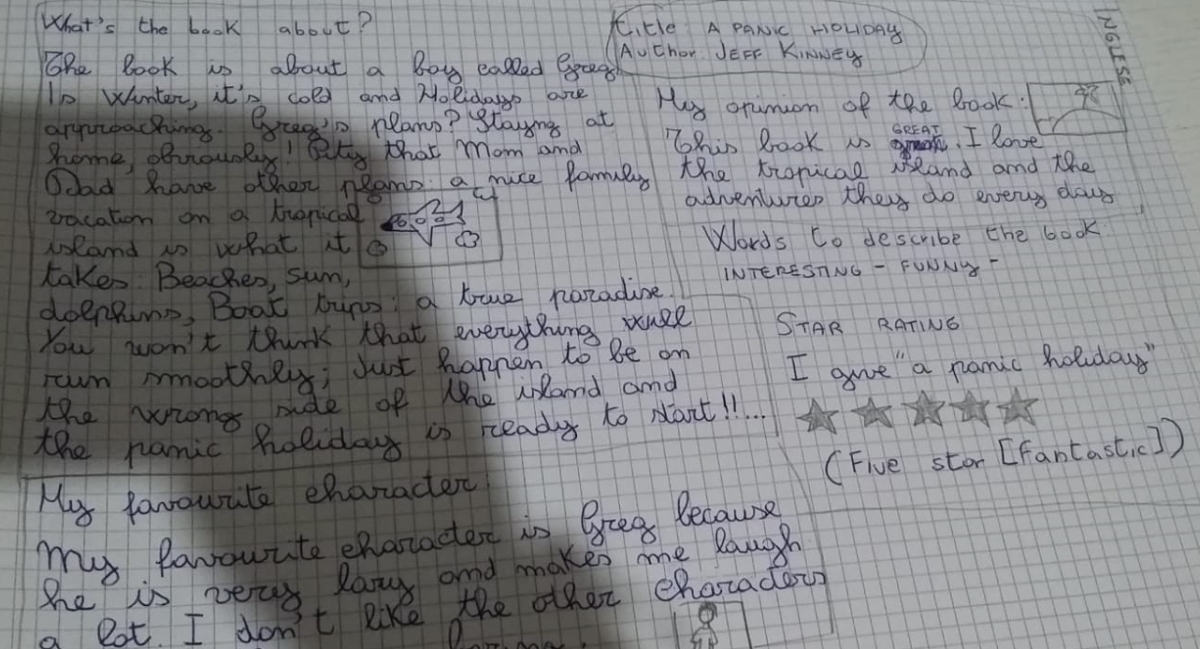 What's the book about?
The book is about a boy called Greg
In Winter, it's cold and Holidays are
approaching. Greg's plans? Stayng at
home, obviously! Pity that Mom and
Dad have other plans: a nice family
vacation on a tropical
island is what it
takes. Beaches, sun,
dolphins, Boat trips: a true paradise.
You won't think that everything will
run smoothly; Just happen to be on
the wrong side of the island and
the panic holiday is ready to start!!...
My favourite character
My favourite character is Greg because
he is very lazy and makes me laugh
a lot. I don't like the other characters
Title: A PANIC HOLIDAY
Author: JEFF KINNEY
INGLESE
My opinion of the book:
This book is GREAT. I love
the tropical island and the
adventures they do every day
Words to describe the book
INTERESTING - FUNNY -
STAR RATING
I give "a panic holiday"
(Five star [Fantastic])